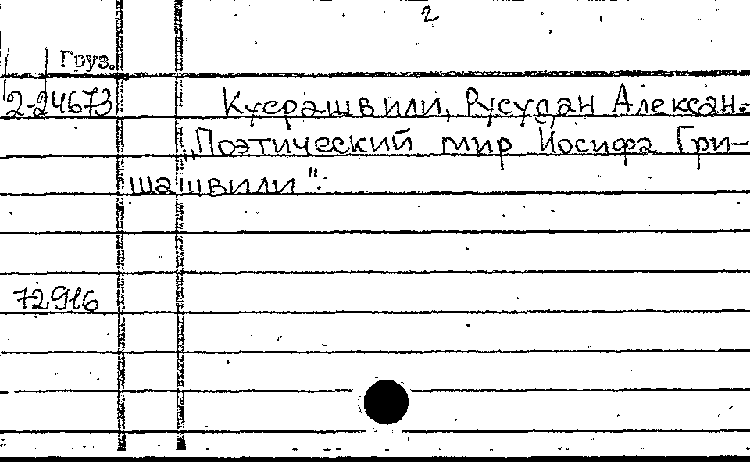 2
Груз.
2-24673 Кусрашвили, Русудан Алексан.
„Поэтический мир Иосифа Гри-
шашвили".
72916